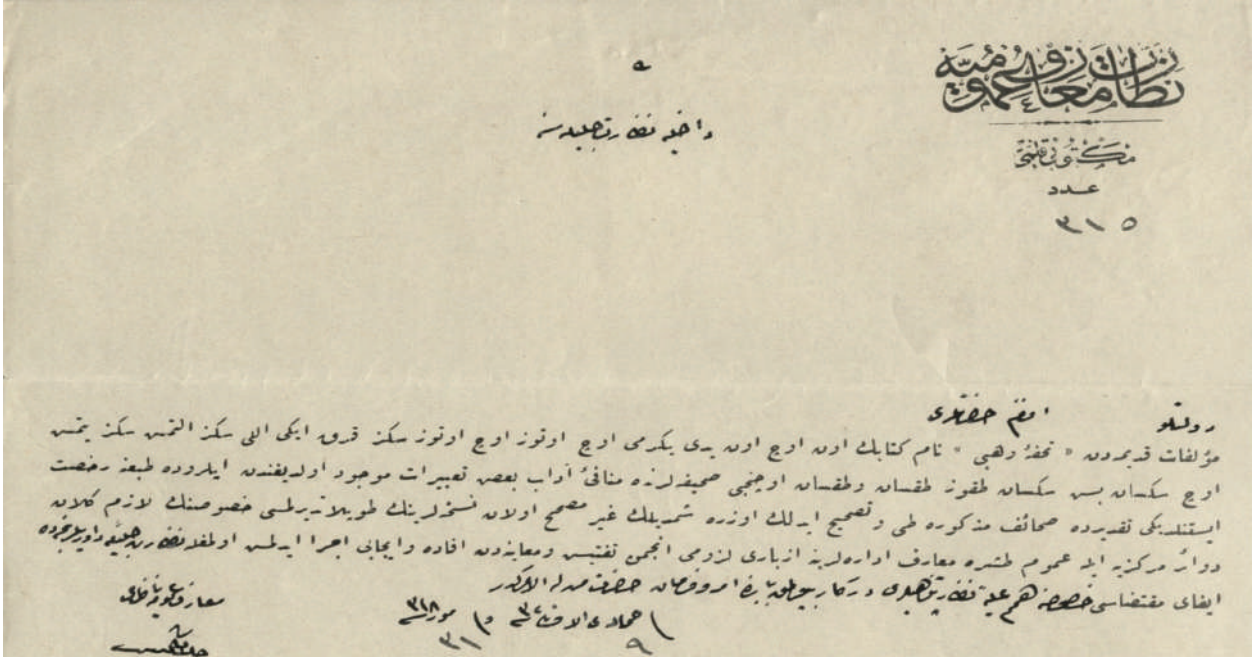 نظارت معارف عمومیه
مكتوبی قلمی
عدد
٣١٥
داخلیه نظارت جلیله سنه
دولتلو افندم حضرتلری
مؤلفات قدیمه‌دن « تحفهٔ وهبی » نام كتابك اون اوچ اون یدی یكرمی اوچ اوتوز اوچ اوتوز سكز قرق ایكی اللی سكز التمش سكز یتمش
اوچ سكسان بش سكسان طقوز طقسان وطقسان اوچنجی صحیفه‌لرنده منافئ آداب بعض تعبیرات موجود اولدیغندن ایلروده طبعنه رخصت
ایستنلدیكی تقدیرده صحائف مذكوره طی وتصحیح ایدلك اوزره شمدیلك غیر مصحح اولان نسخه‌لرینك طوپلاتدیرلمسی خصوصنك لازم كلان
دوائر مركزیه ایله عموم طشره معارف اداره‌لرینه ازباری لزومی انجمن تفتیش ومعاینه‌دن افاده وایجابی اجرا ایدلمش اولمغله نظارت جلیله
ایفای مقتضاسی خصوصنه همم علیهٔ نظارتپناهیلری دركار بیورلمق بابنده امر وفرمان حضرت من له الامركدر
جمادی الاخر سنه ٣١٨
معارف عمومیه ناظری